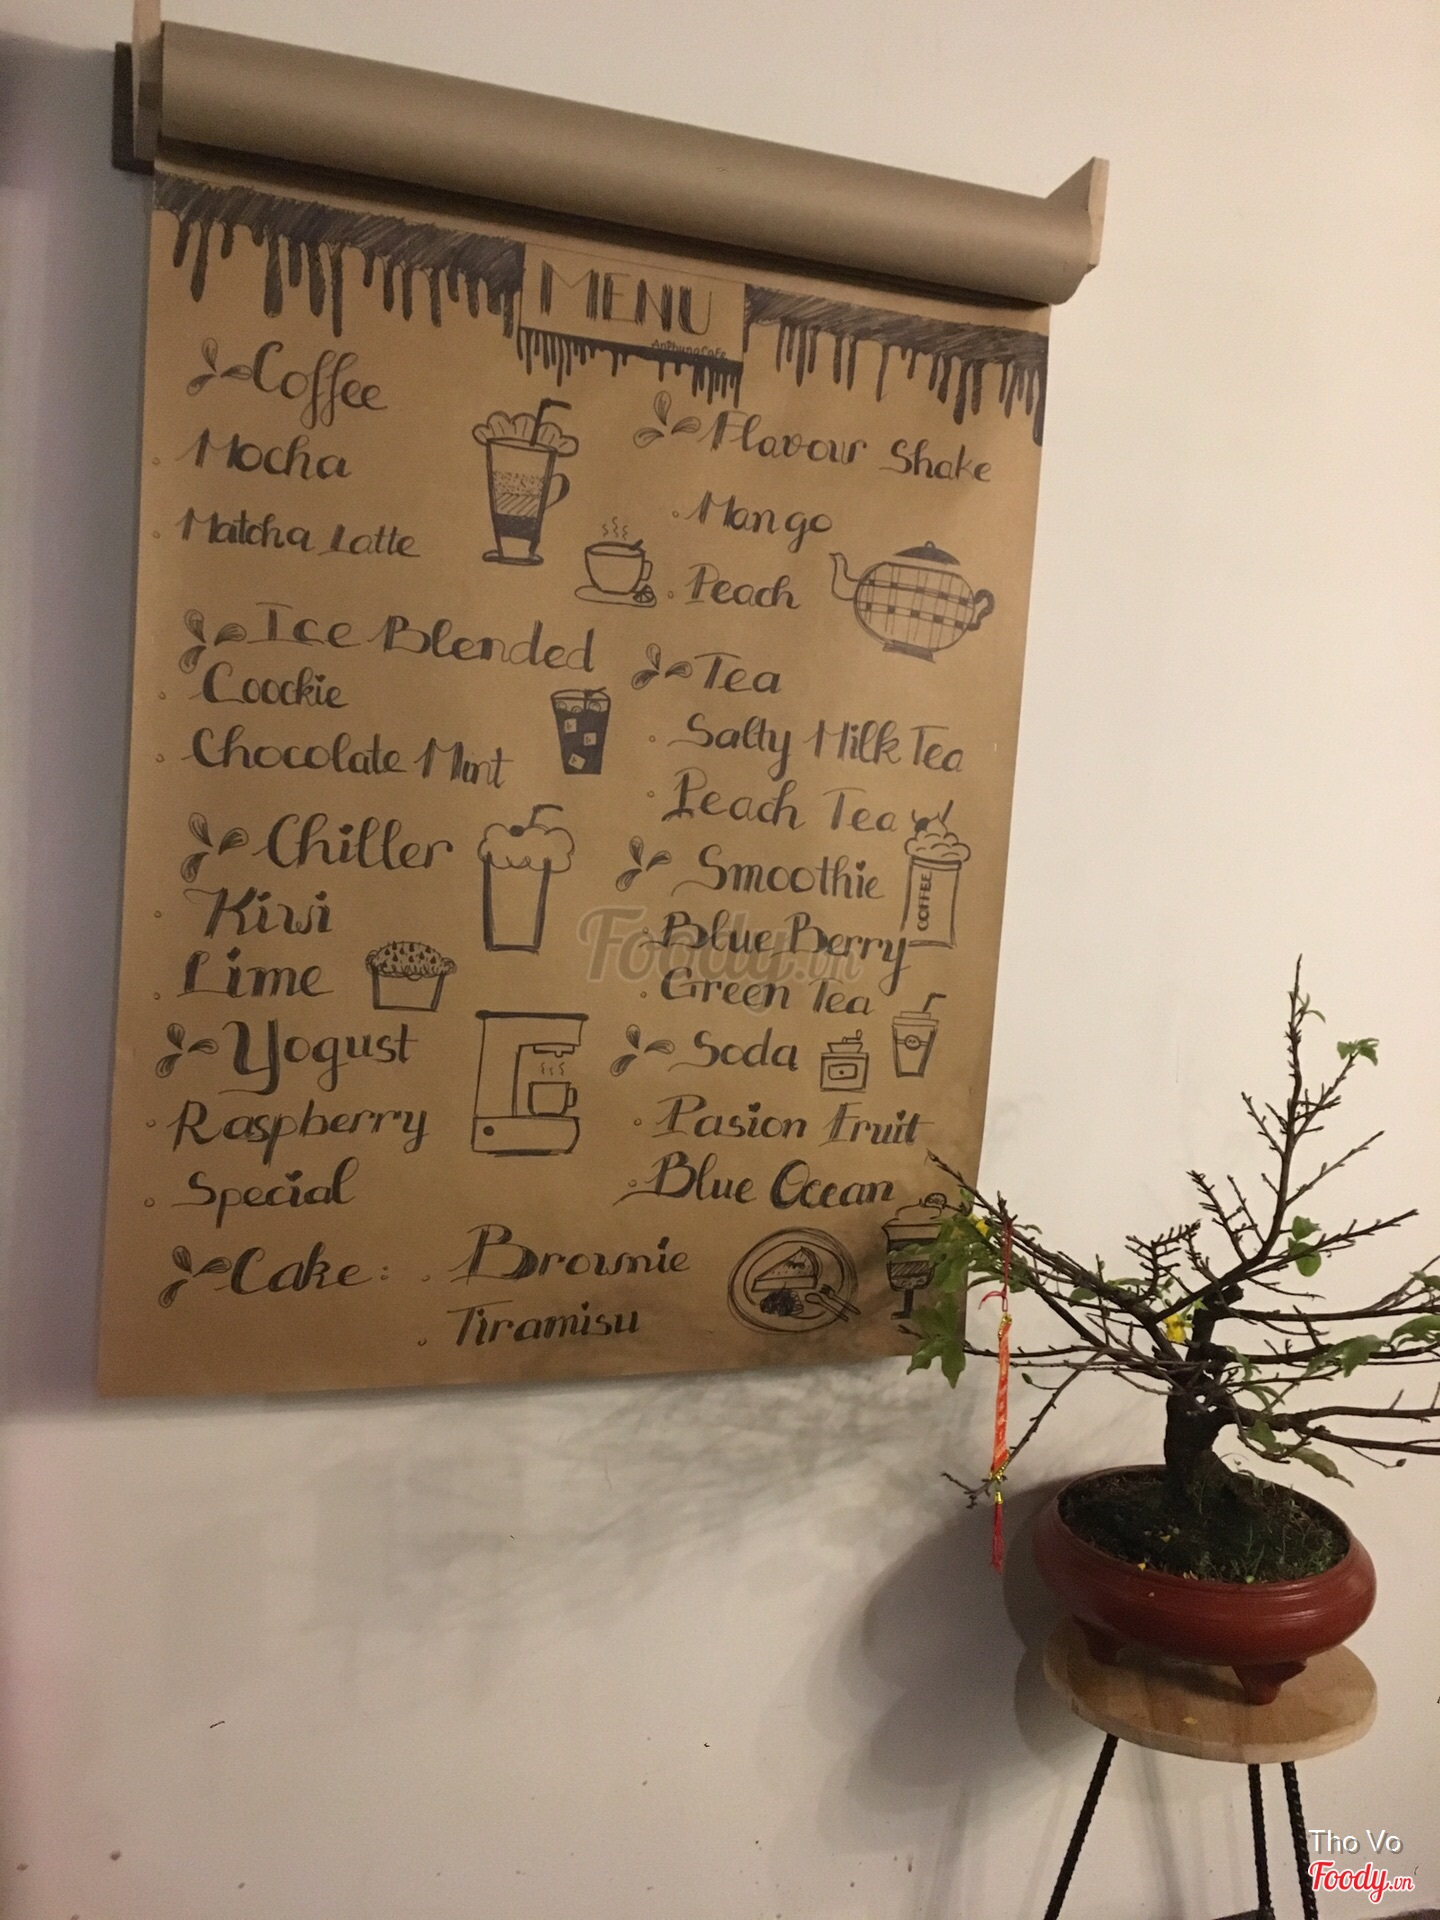 MENU
AnPhungCafe
Coffee
Mocha
Matcha Latte
Ice Blended
Coockie
Chocolate Mint
Chiller
Kiwi
Lime
Yogust
Raspberry
Special
Cake:
Brownie
Tiramisu
Flavour Shake
Mango
Peach
Tea
Salty Milk Tea
Peach Tea
Smoothie
COFFEE
Blue Berry
Green Tea
Soda
Pasion Fruit
Blue Ocean
Foody.vn
Tho Vo
Foody.vn